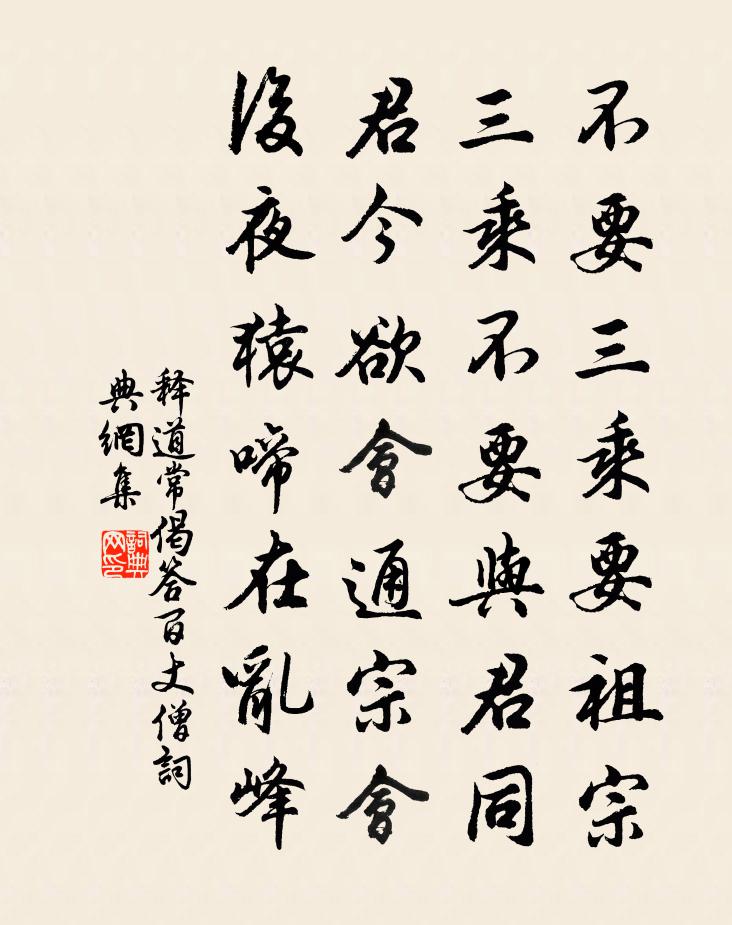 不要三乘要祖宗
三乘不要與君同
君今欲會通宗會
後夜猿啼在亂峰
释道常偈答百丈僧詞
典網集
詞典
网印